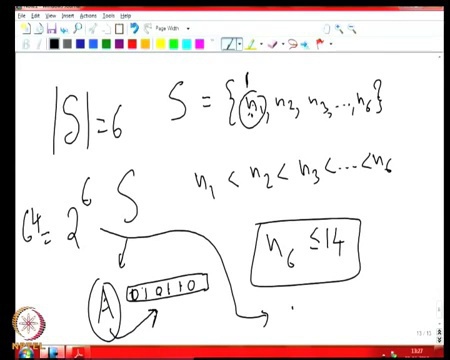 File Edit View Insert Actions Tools Help
Page Width
|S| = 6 S = {n1, n2, n3, ..., n6}
1
n1 < n2 < n3 < ... < n6
64 = 2^6 S
n6 ≤ 14
A 010110
13:27